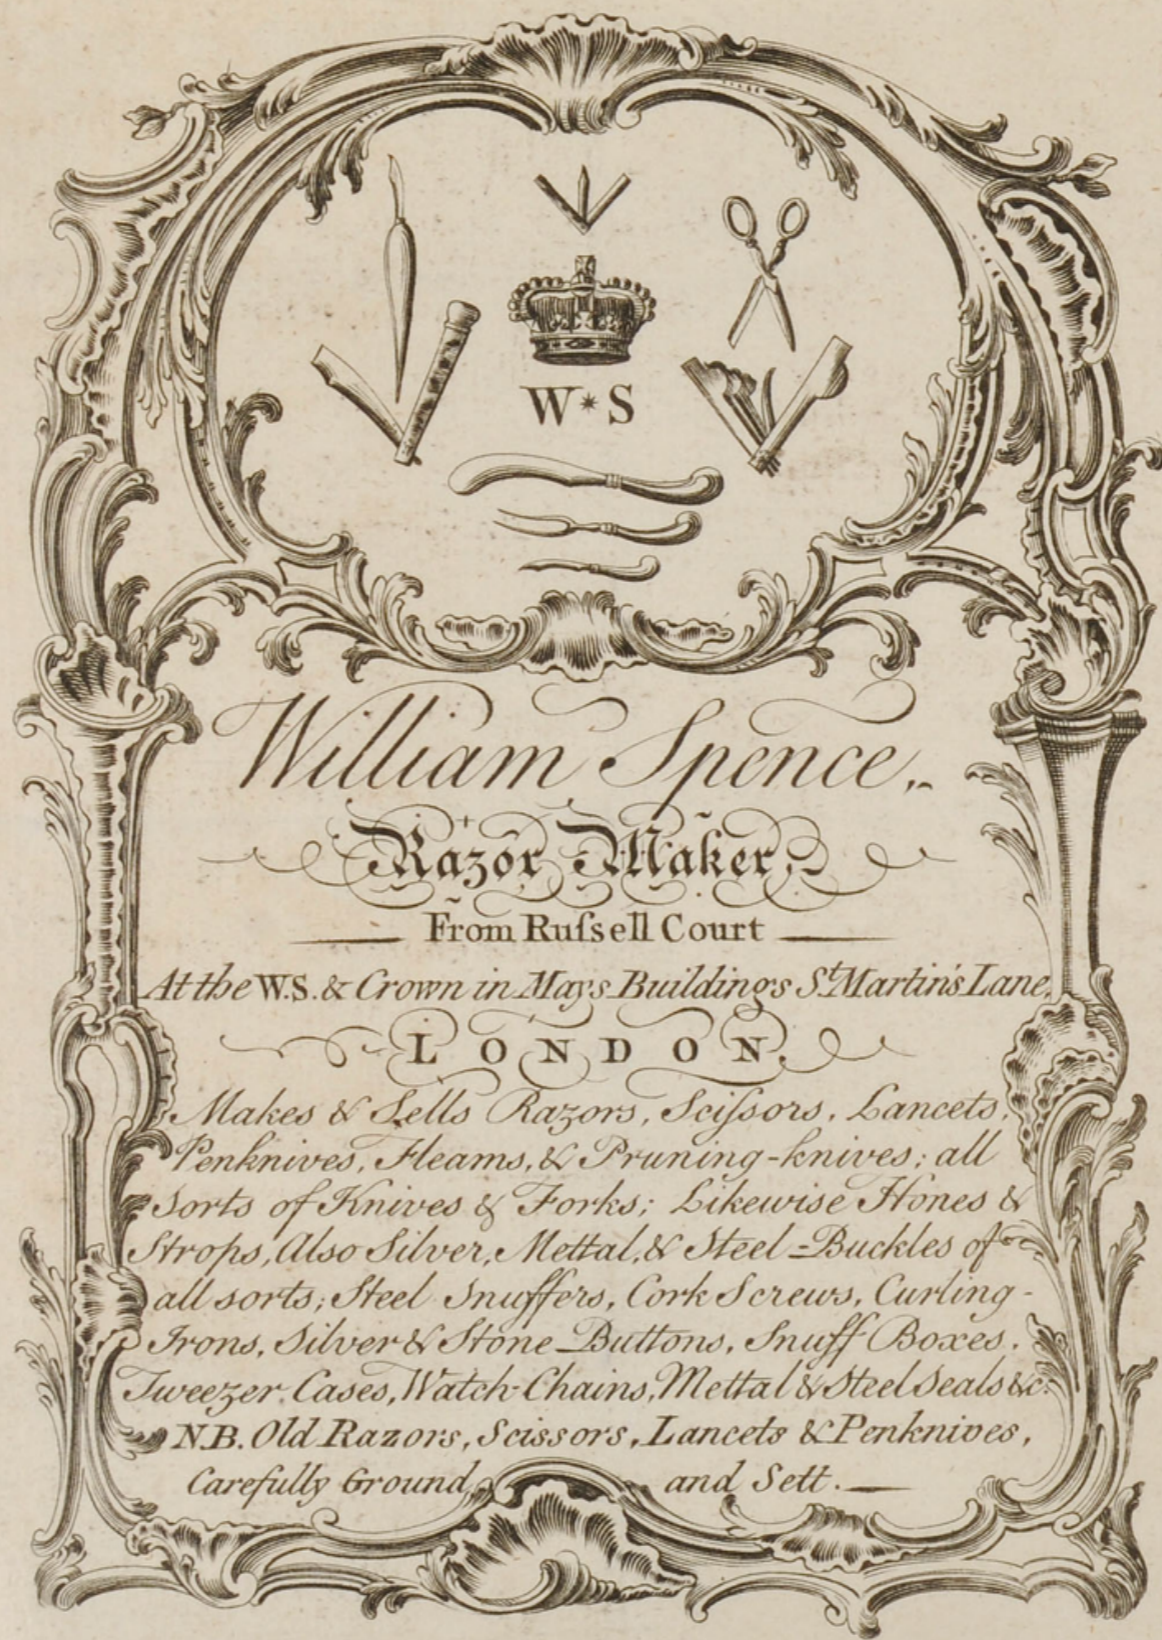 W * S
William Spence,
Razor Maker,
From Rufsell Court
At the W.S. & Crown in Mays Buildings St. Martin's Lane,
LONDON.
Makes & Sells Razors, Scifsors, Lancets,
Penknives, Fleams, & Pruning-knives; all
Sorts of Knives & Forks; Likewise Hones &
Strops, Also Silver, Mettal, & Steel-Buckles of
all sorts; Steel Snuffers, Cork Screws, Curling-
Irons, Silver & Stone-Buttons, Snuff Boxes,
Tweezer Cases, Watch-Chains, Mettal & Steel Seals &c.
N.B. Old Razors, Scissors, Lancets & Penknives,
Carefully Ground, and Sett.